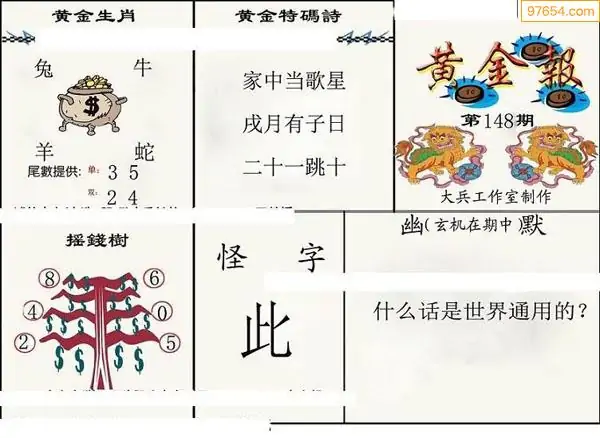 97654.com
黄金生肖
兔 牛
羊 蛇
尾數提供: 单: 3 5
双: 2 4
黄金特碼詩
家中当歌星
戌月有子日
二十一跳十
黄金報
第148期
大兵工作室制作
摇錢樹
8 6
4 0
2 5
怪 字
此
幽(玄机在期中)默
什么话是世界通用的?